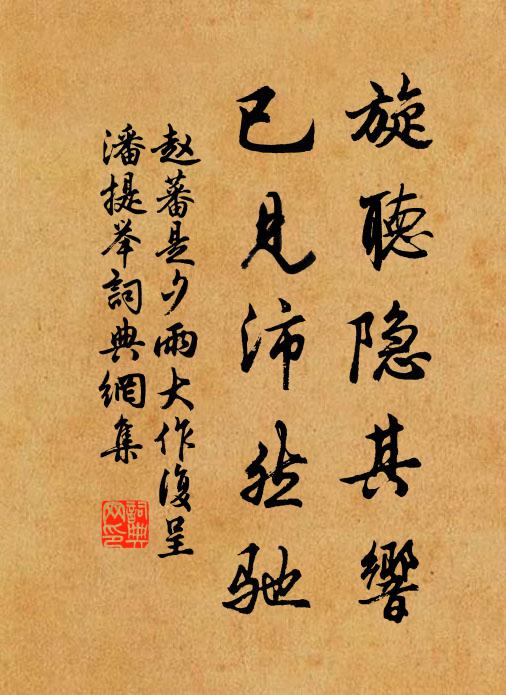 旋聽隐其響
已見沛然馳
赵蕃是夕雨大作復呈
潘提举詞典網集
詞典網印